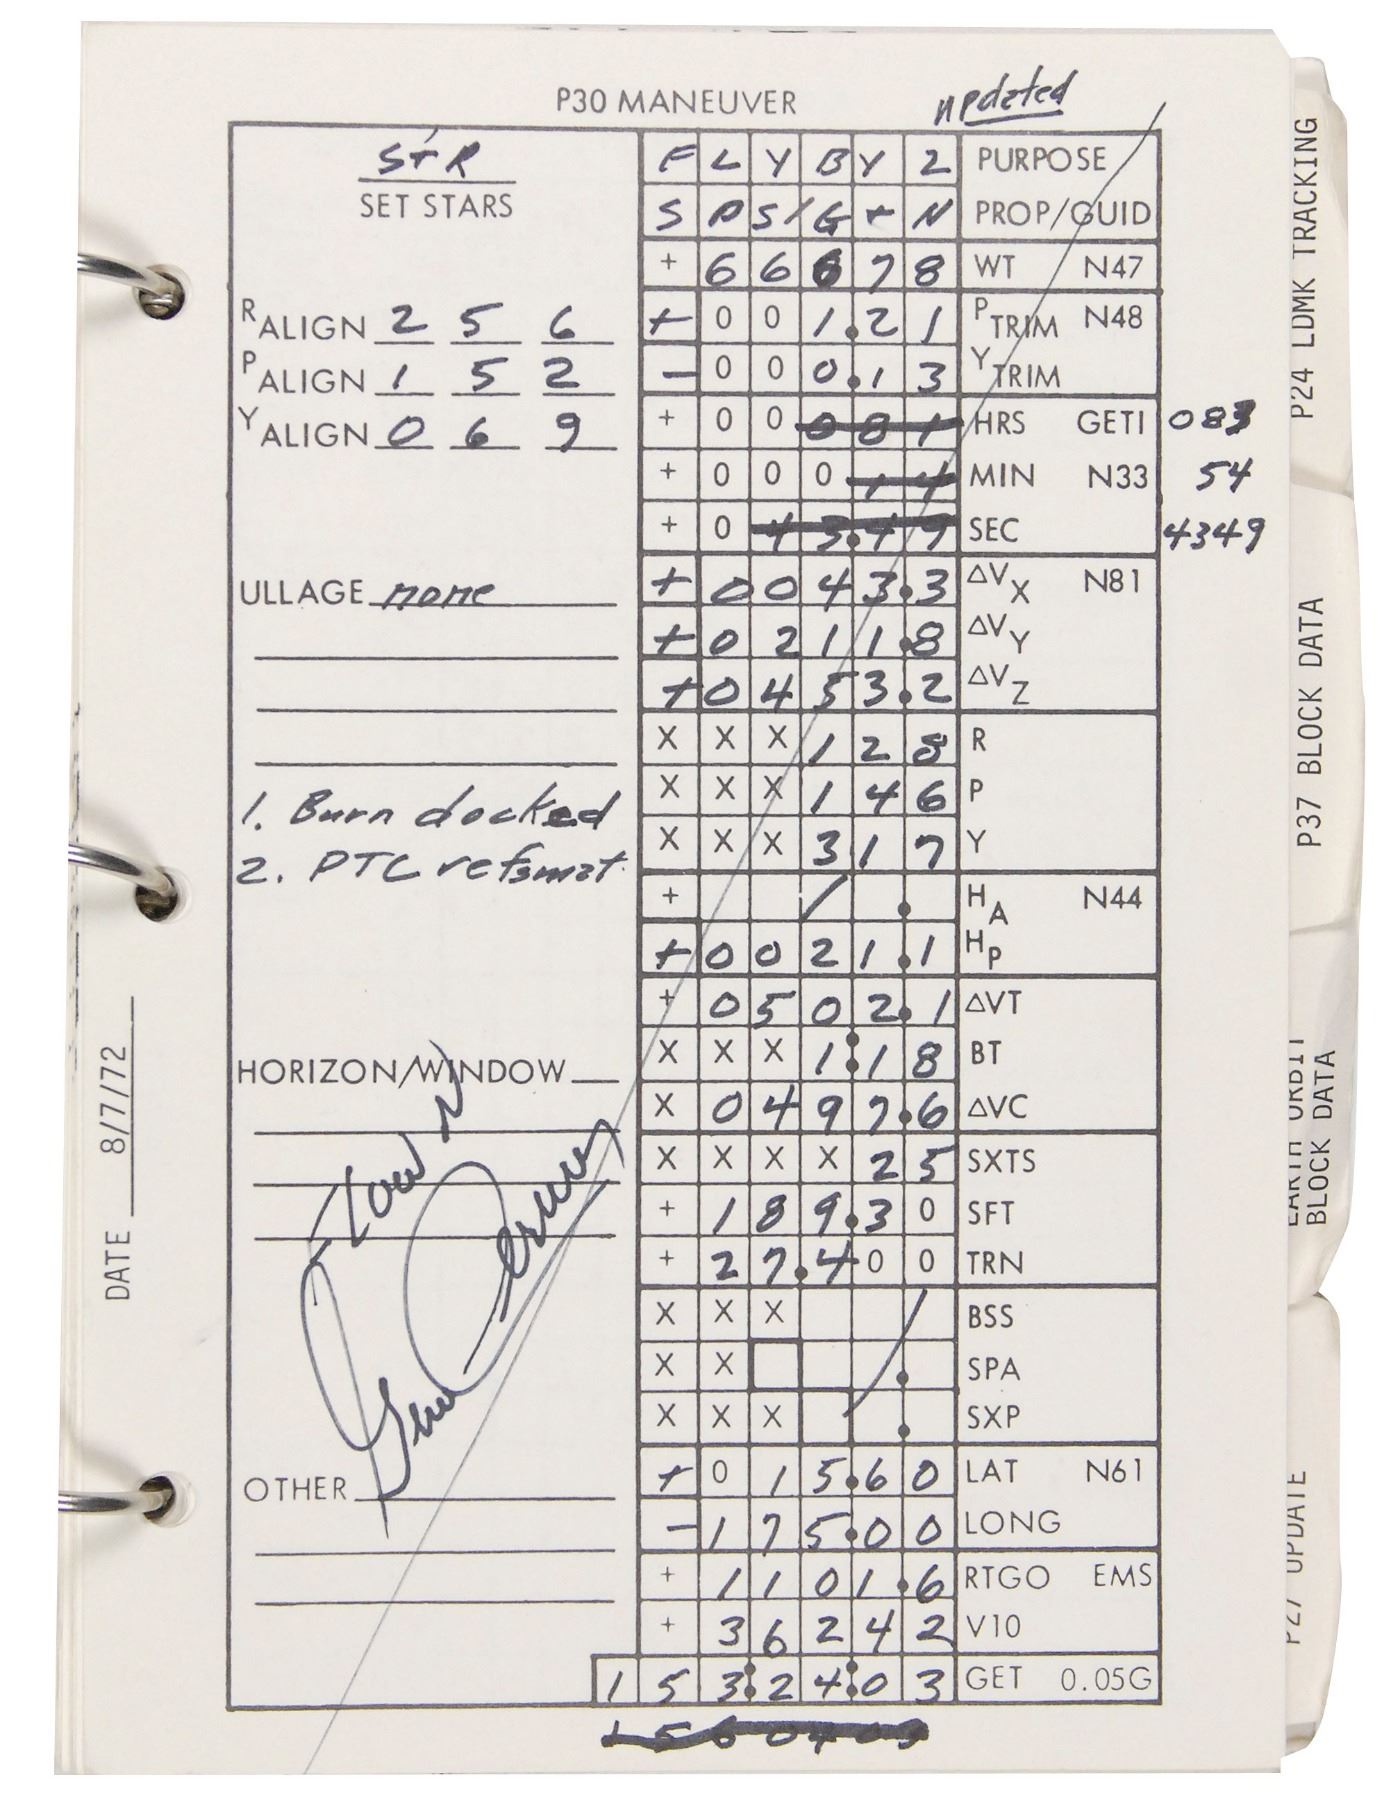 P30 MANEUVER updated
S+R
SET STARS
R ALIGN 2 5 6
P ALIGN 1 5 2
Y ALIGN 0 6 9
ULLAGE none
1. Burn docked
2. PTC refsmat
HORIZON/WINDOW
Flown
Gene Cernan
OTHER
F L Y B Y 2 PURPOSE
S P S / G + N PROP/GUID
+ 6 6 6 7 8 WT N47
+ 0 0 1.2 1 P TRIM N48
- 0 0 0.1 3 Y TRIM
+ 0 0 0 8 1 HRS GETI 083
+ 0 0 0 1 4 MIN N33 54
+ 0 4 3.4 9 SEC 4349
+ 0 0 4 3.3 ΔVX N81
+ 0 2 1 1.8 ΔVY
+ 0 4 5 3.2 ΔVZ
X X X 1 2 8 R
X X X 1 4 6 P
X X X 3 1 7 Y
+ / . HA N44
+ 0 0 2 1.1 HP
+ 0 5 0 2.1 ΔVT
X X X 1:1 8 BT
X 0 4 9 7.6 ΔVC
X X X X 2 5 SXTS
+ 1 8 9.3 0 SFT
+ 2 7.4 0 0 TRN
X X X / BSS
X X . SPA
X X X . SXP
+ 0 1 5.6 0 LAT N61
- 1 7 5.0 0 LONG
+ 1 1 0 1.6 RTGO EMS
+ 3 6 2 4 2 V10
1 5 3:2 4:0 3 GET 0.05G
DATE 8/7/72
P24 LDMK TRACKING
P37 BLOCK DATA
EARTH ORBIT
BLOCK DATA
P27 UPDATE